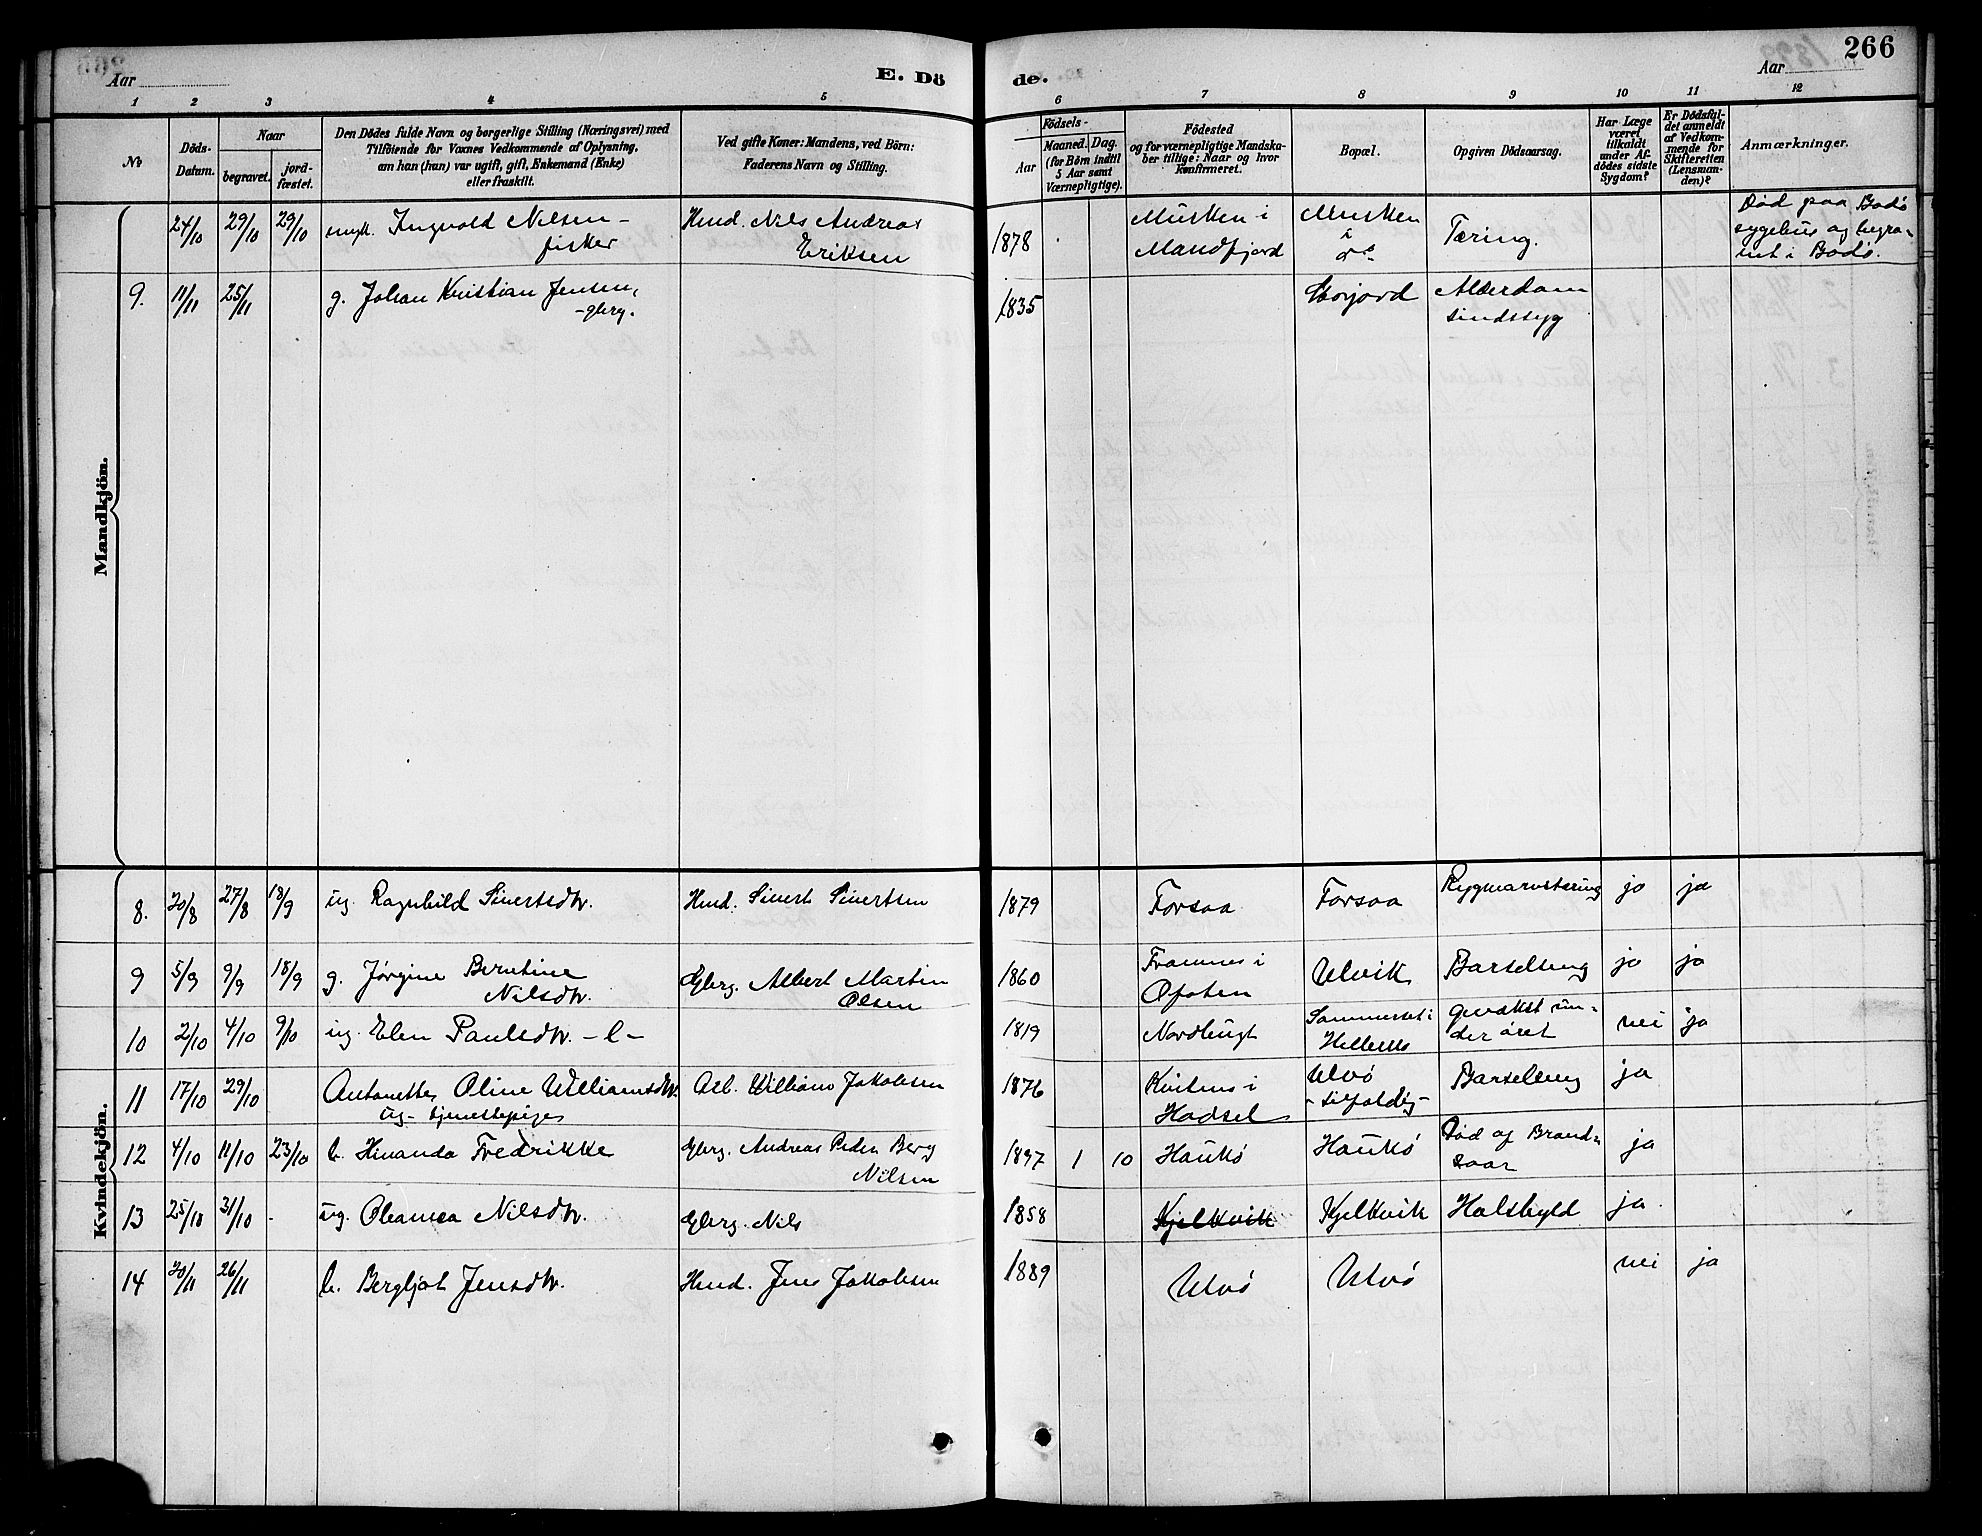 266
Aar
E. Dö
de.
Aar
1 2 3 4 5 6 7 8 9 10 11 12
No
Döds-
Datum.
Naar
begravet.
jord-
fæstet.
Den Dödes fulde Navn og borgerlige Stilling (Næringsvei) med
Tilföiende for Voxnes Vedkommende af Oplysning,
om han (hun) var ugift, gift, Enkemand (Enke)
eller fraskilt.
Ved gifte Koner: Mandens, ved Börn:
Faderens Navn og Stilling.
Födsels-
Aar
Maaned.
Dag.
(for Börn indtil
5 Aar samt
Værnepligtige).
Födested
og for værnepligtige Mandska-
ber tillige: Naar og hvor
konfirmeret.
Bopæl.
Opgiven Dödsaarsag.
Har Læge
været
tilkaldt
under Af-
dödes sidste
Sygdom?
Er Dödsfal-
det anmeldt
af Vedkom-
mende for
Skifteretten
(Lensman-
den)?
Anmærkninger.
Mandkjön.
24/10 29/10 29/10 Ingvold Nilsen - Hmd. Nils Andreas 1878 Musken i Musken Tæring. Död paa Bodö
fisker Eriksen Mandfjord sygehus og begra-
vet i Bodö.
9. 11/11 25/11 g. Johan Kristian Jensen, 1835 Storjord Alderdom
-gbrg. sindssyg
Kvindekjön.
8. 20/8 27/8 18/9 ug. Ragnhild Sivertsdtr. Hmd. Sivert Sivertsen 1879 Forsaa Forsaa Rygmarvstæring ja ja
9 5/9 9/9 18/9 g. Jörgine Berntine Gbrg. Albert Martin 1860 Framnes i Ulvik Barselseng ja ja
Nilsdtr. Olsen Ofoten
10 2/10 4/10 9/10 ug. Elen Paulsdtr. - l - 1819 Nordbugt Sommerset i nei ja
11 17/10 29/10 Antonette Oline Williamsdtr. Arb. William Jakobsen 1876 i Ulvö Barselseng ja
ug- tjenestepige Hadsel - tilfældig -
12 4/10 11/10 23/10 b. Hinanda Fredrikke Gbrg. Andreas Peder Berg 1897 1 10 Haukö Haukö Död af Brand- ja
Nilsen saar
13 25/10 31/10 - ug. Oleanna Nilsdtr. Gbrg. Nils 1858 Kjelkvik Kjelkvik Halsbyld ja.
14 20/11 26/11 b. Bergljot Jensdtr. Hmd. Jens Jakobsen 1889 Ulvö Ulvö nei ja